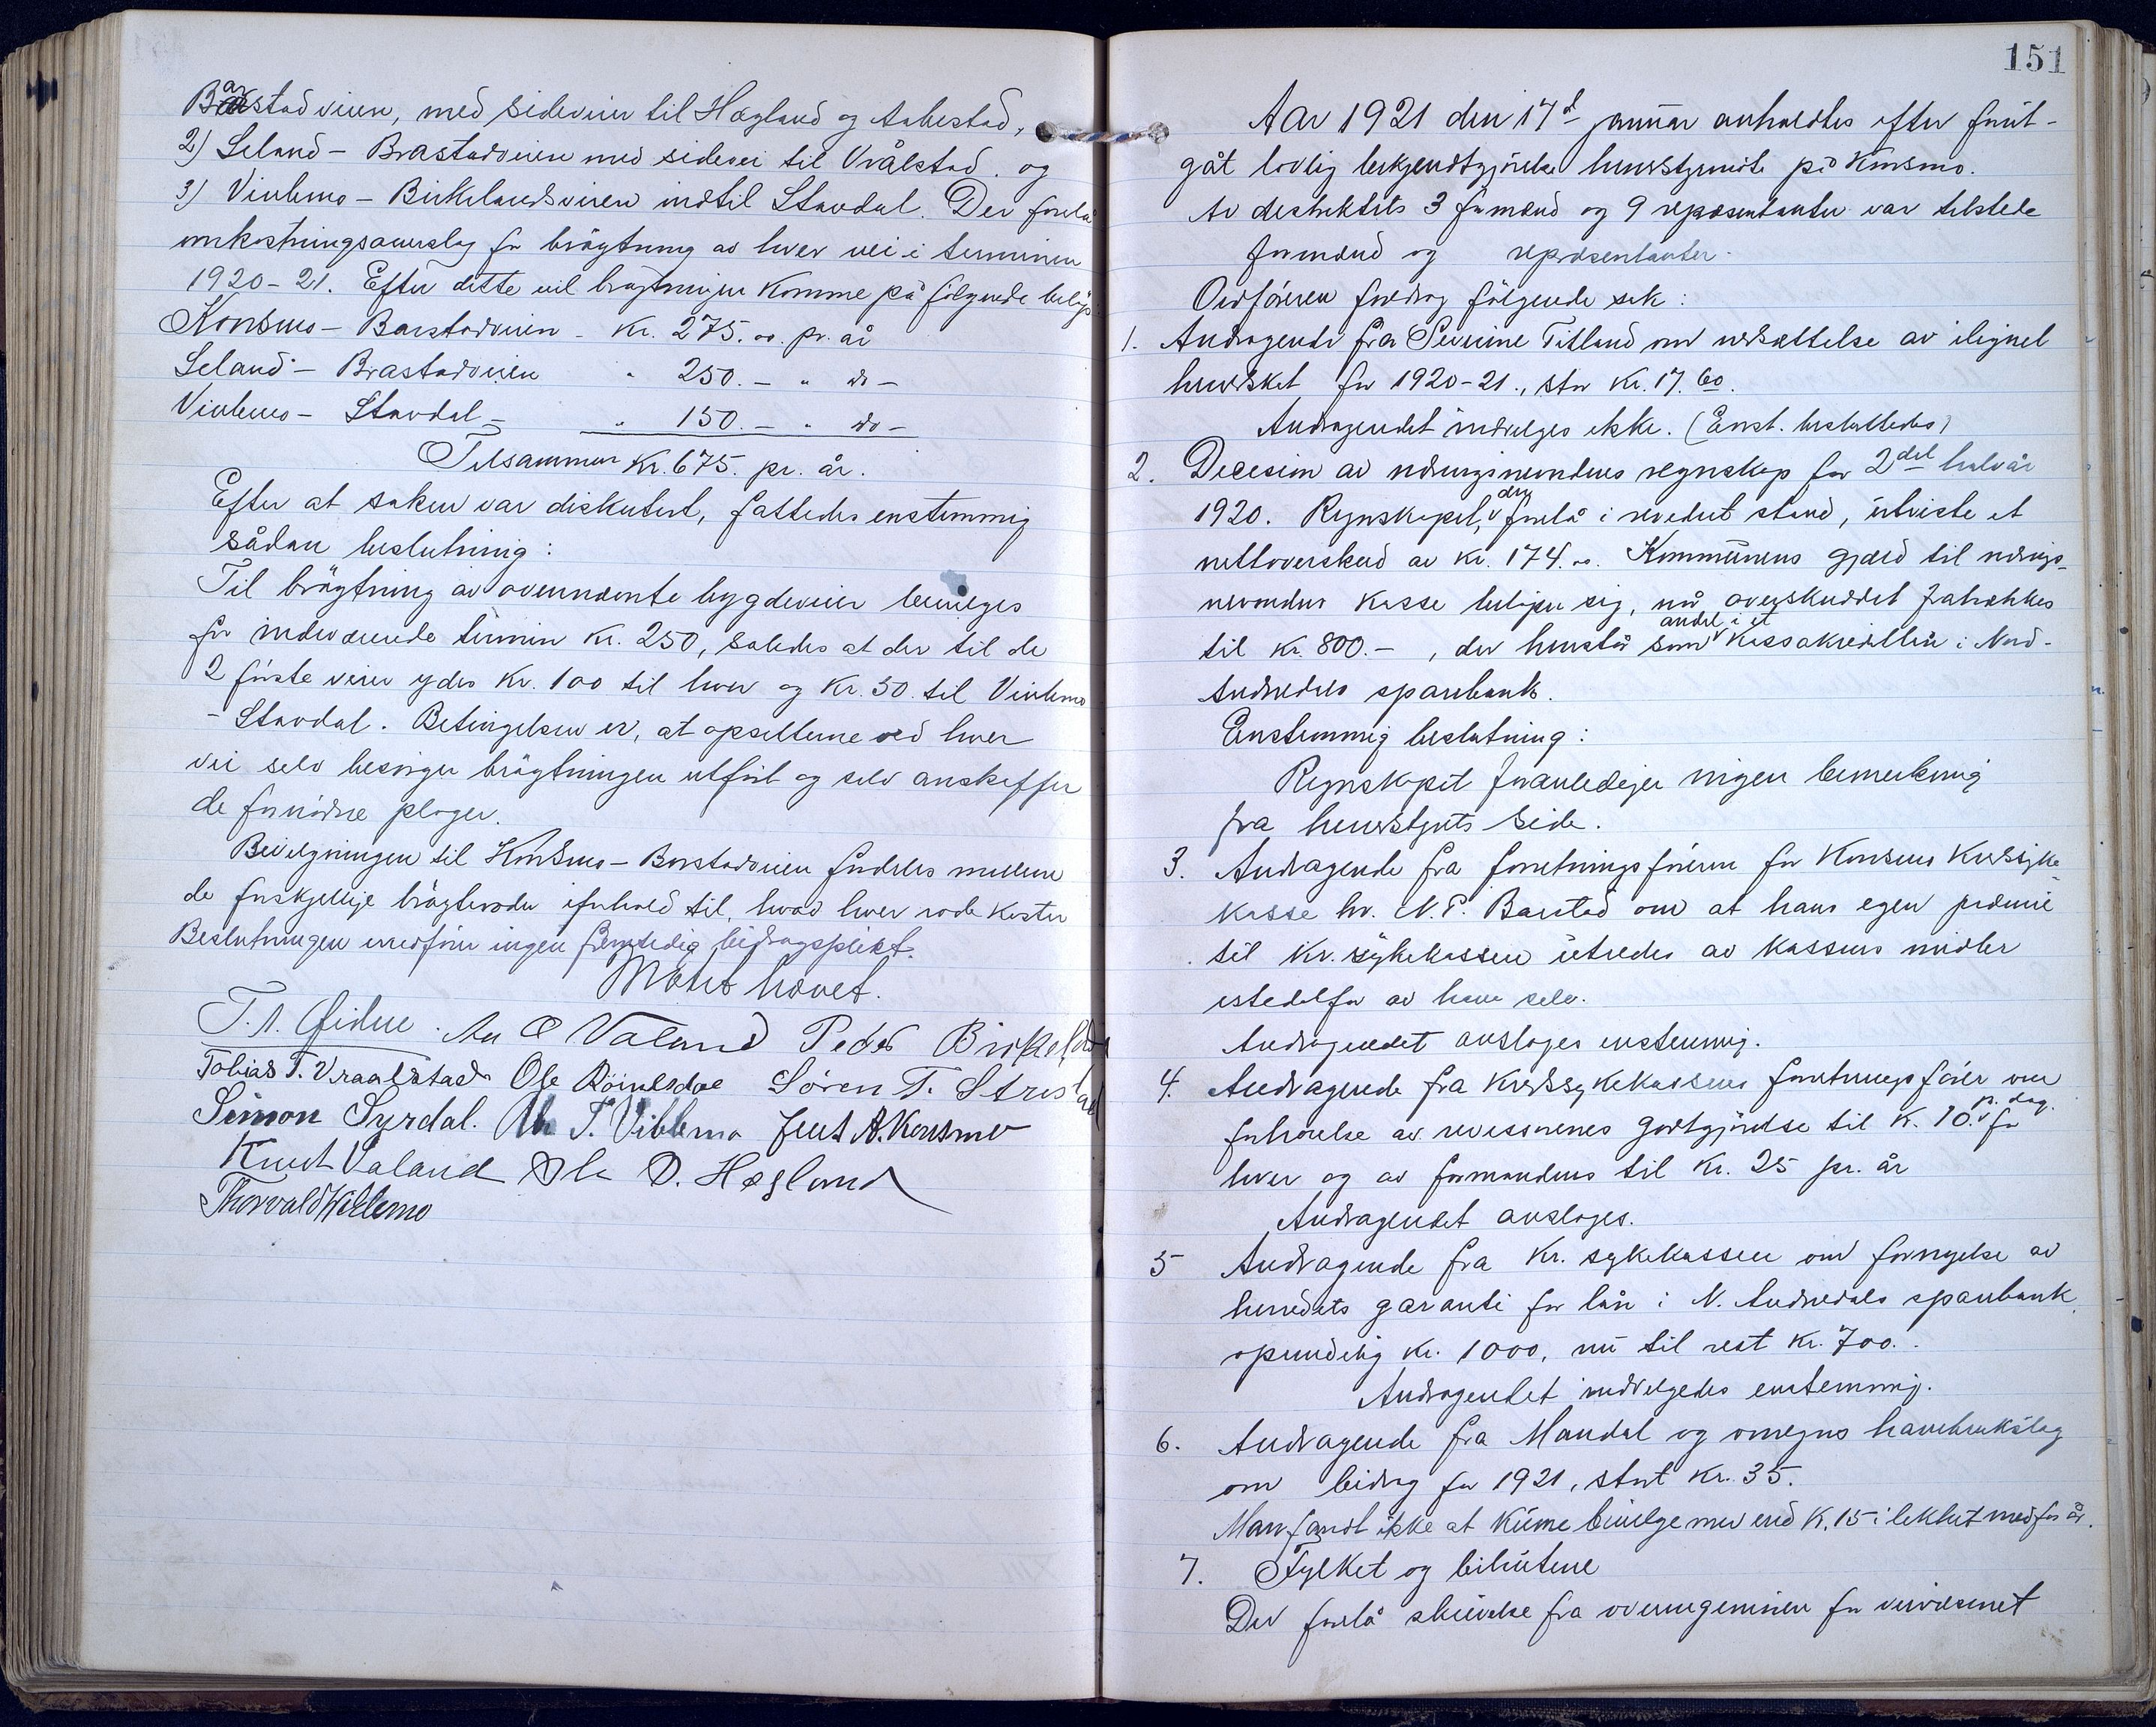 Barstadveien, med sideveier til Hægland og Aabestad,
2) Leland - Brastadveien med sidevei til Vrålstad. og
3) Viblemo - Birkelandsveien indtil Stavdal. Der forelå
omkostningsoverslag for brøgtning av hver vei i terminen
1920-21. Efter dette vil brøgtningen komme på følgende beløp:
Konsmo - Barstadveien - Kr. 275.00. pr. år
Leland - Brastadveien " 250.- " do -
Viblemo - Stavdal - " 150.- " do -
Tilsammen Kr. 675. pr. år.
Efter at saken var diskutert, fattedes enstemmig
sådan beslutning:
Til brøgtning av ovennævnte bygdeveier bevilges
for indeværende termin Kr. 250, således at der til de
2 første veier ydes Kr. 100 til hver og Kr. 50 til Viblemo
- Stavdal. Betingelsen er, at opsitterne ved hver
vei selv besørger brøgtningen utført og selv anskaffer
de fornødne ploger.
Bevilgningen til Konsmo - Barstadveien fordeles mellem
de forskjellige brøgteroder i forhold til, hvad hver rode koster
Beslutningen medfører ingen fremtidig bidragsplikt.
Møtet hævet.
T. A. Øidne. An O Valand Peder Birkeland
Tobias T. Vraalstad Ole Röinesdal Sören T. Strisland
Simon Syrdal. T. Viblemo Jens A. Konsmo
Knut Valand Ole O. Hægland
Thorvald Wiblemo
151
Aar 1921 den 17d januar avholdtes efter forut-
gåt lovlig bekjendtgjörelse herredstyremöte på Konsmo.
Av destriktets 3 formænd og 9 repræsentanter var tilstede
formænd og repræsentanter.
Ordföreren foredrog fölgende sak:
1. Andragende fra Severine Titland om nedsættelse av ilignet
herredskat for 1920-21., stor Kr. 17.60.
Andragendet indvilges ikke. (Enst. besluttedes)
2. Decision av nævndens regnskap for 2det halvår
1920. Regnskapet, der forelå i revidert stand, utviste et
nettooverskud av Kr. 174.00. Kommunens gjæld til
nevndens kasse beløper sig, når overskuddet fratrækkes
til Kr. 800.-, der henstår som andel i et kassakreditlån i Nord-
Audnedals sparebank.
Enstemmig beslutning:
Regnskapet foranlediger ingen bemerkning
fra herredstyrets side.
3. Andragende fra forretningsføreren for Konsmo kredssyke-
kasse hr. N. P. Barstad om at hans egen premie
til Kr. sykekassen utredes av kassens midler
istedetfor av ham selv.
Andragendet avslåges enstemmig.
4. Andragende fra kredssykekassens forretningsfører om
forhøielse av revisorenes godtgjørelse til K. 10. pr. dag. for
hver og av formandens til Kr. 25 pr. år
Andragendet avslåges.
5 Andragende fra Kr. sykekassen om fornyelse av
herredets garanti for lån i N. Audnedals sparebank
oprindelig kr. 1000, nu til rest Kr. 700.
Andragendet indvilgedes enstemmig.
6. Andragende fra Mandal og omegns havebrukslag
om bidrag for 1921, stort Kr. 35.
Man fandt ikke at kunne bevilge mer end K. 15 i likhet med før år.
7. Fylket og bilrutene
Der forelå skrivelse fra overingeniøren for veivæsenet